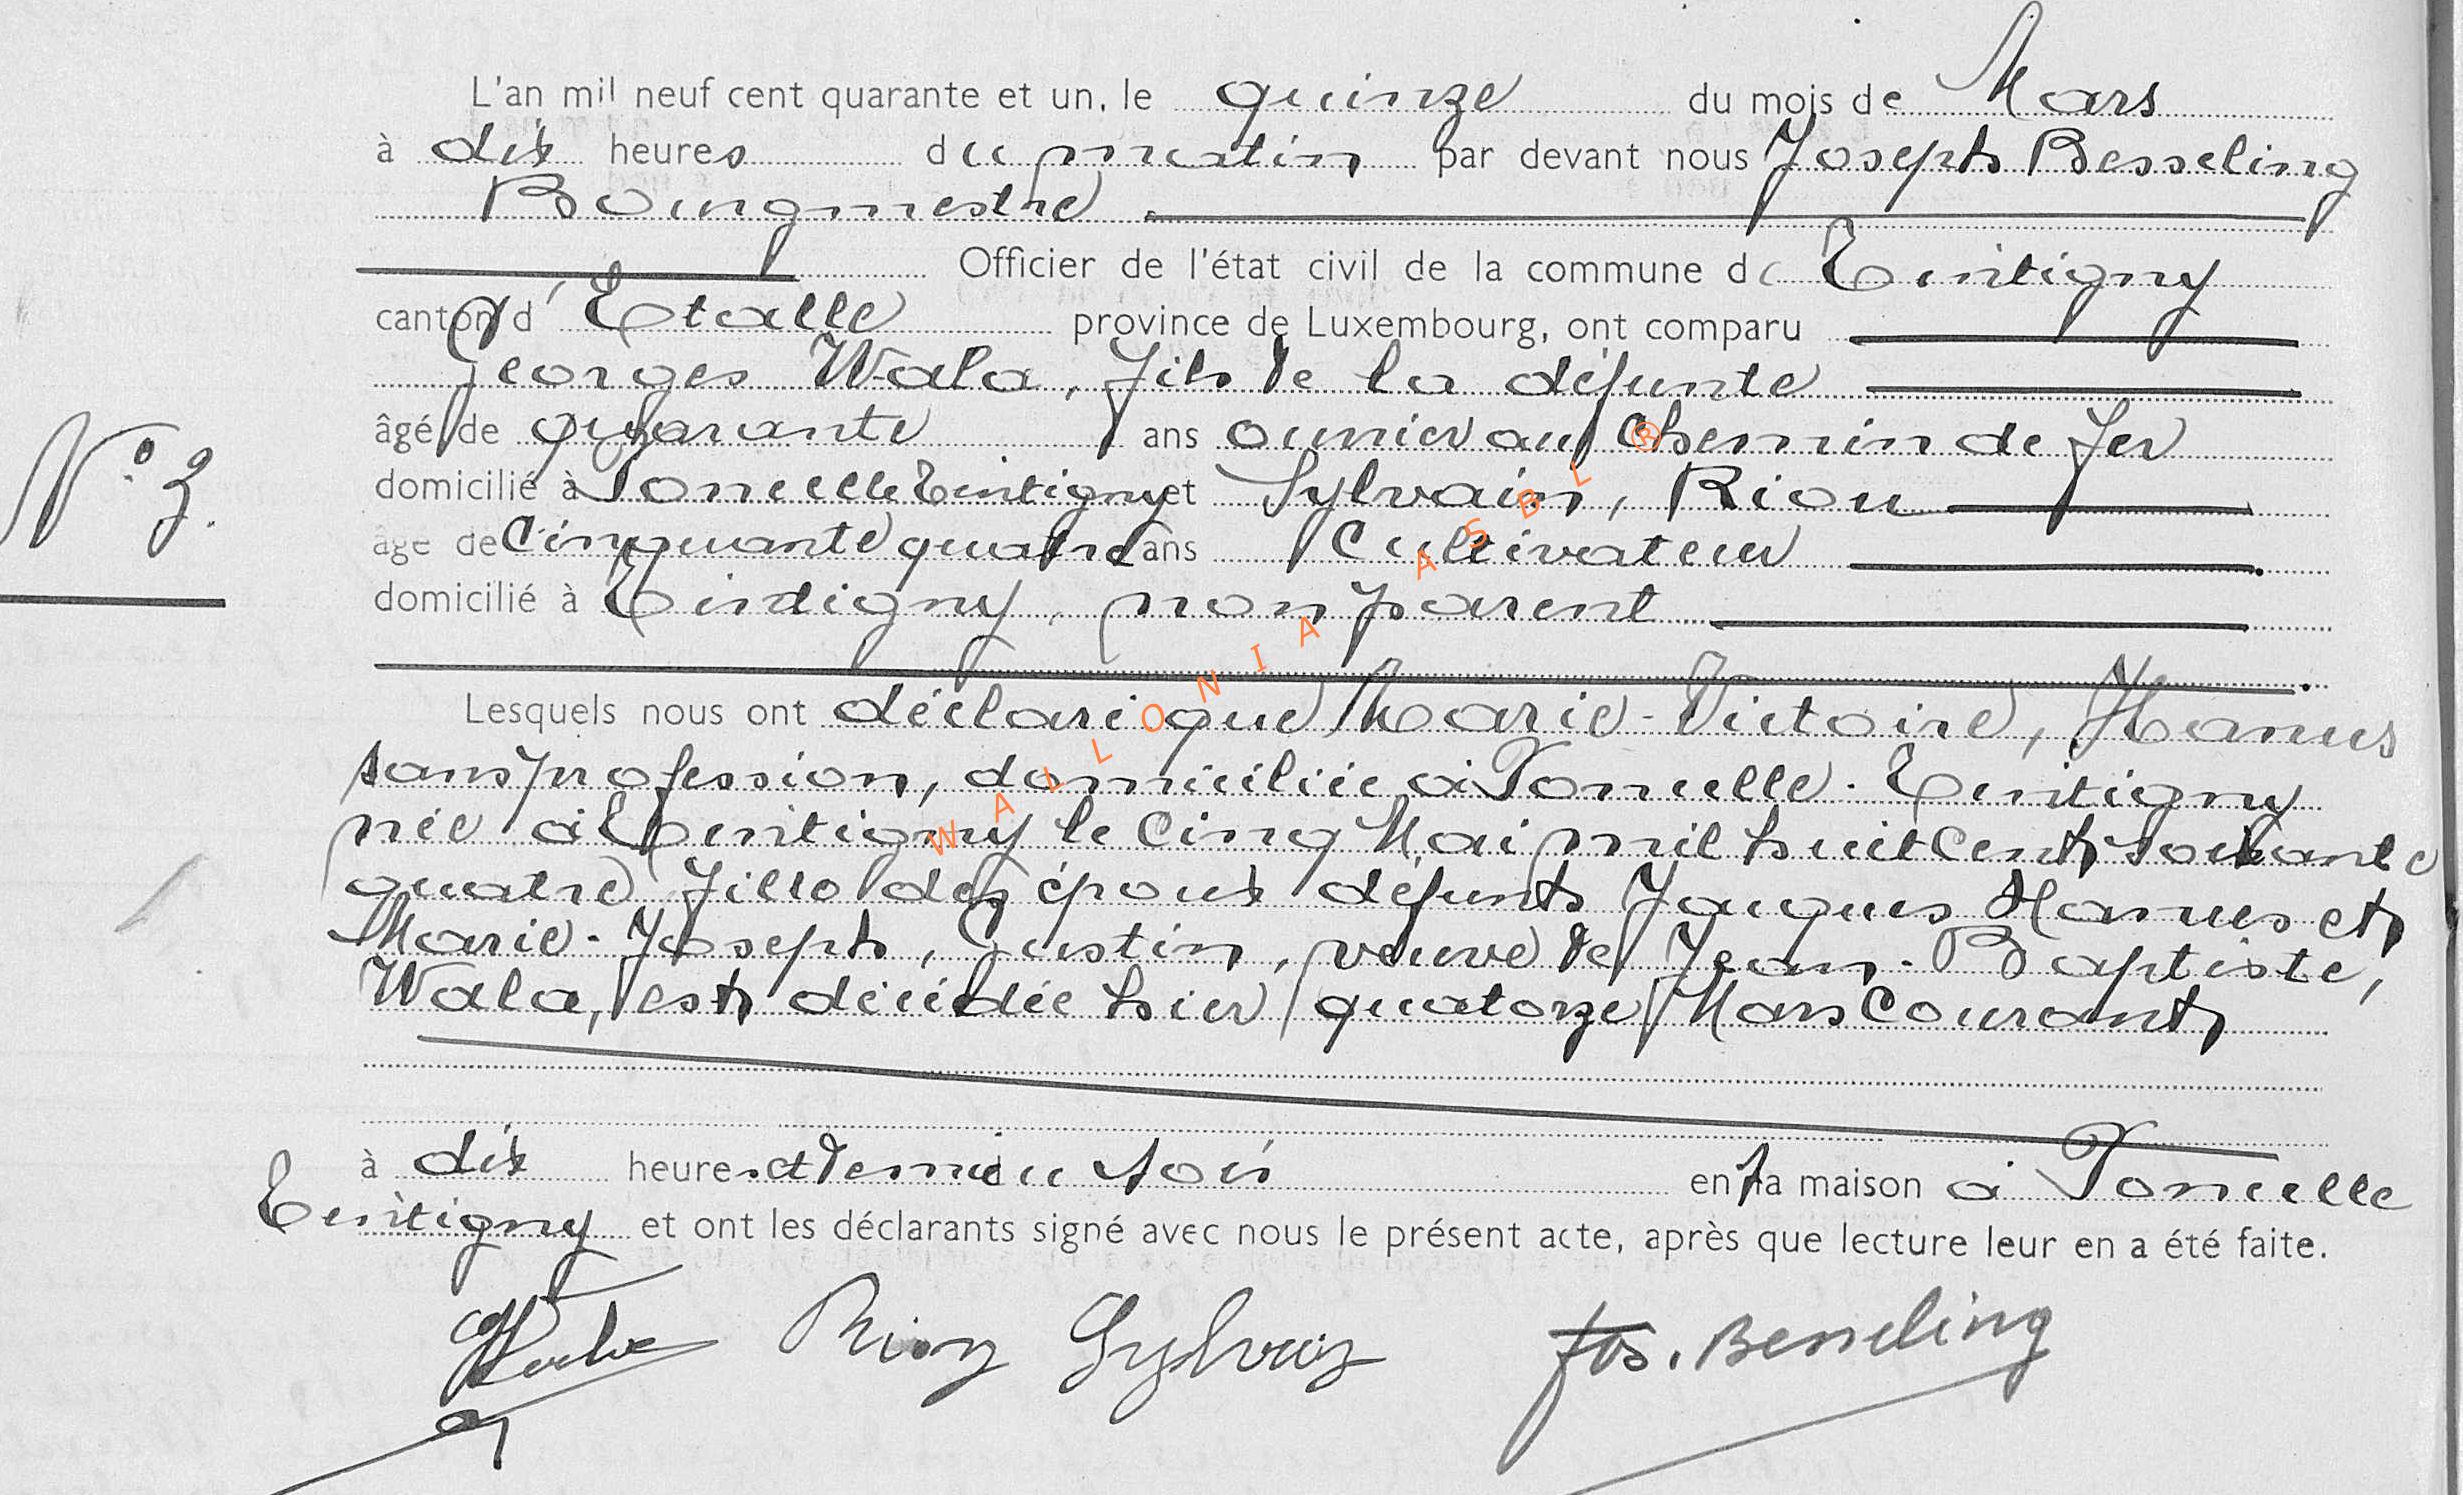 L'an mil neuf cent quarante et un, le quinze du mois de Mars
à dix heures du matin par devant nous Joseph Besseling
Bourgmestre
Officier de l'état civil de la commune de Tintigny
canton d'Etalle province de Luxembourg, ont comparu
Georges Wala, fils de la défunte
âgé de quarante ans ouvrier au chemin de fer
domicilié à Poncelle Tintigny et Sylvain, Rion
âgé de Cinquante quatre ans Cultivateur
domicilié à Tintigny, non parent
N° 3.
Lesquels nous ont déclaré que Marie-Victoire, Hanus
sans profession, domiciliée à Poncelle-Tintigny
née à Tintigny le cinq Mai mil huit cent soixante
quatre fille des époux défunts Jacques Hanus et
Marie-Joseph, Gustin, veuve de Jean-Baptiste,
Wala, est décédée hier quatorze Mars Courant
à dix heures et demi du soir en sa maison à Poncelle
Tintigny et ont les déclarants signé avec nous le présent acte, après que lecture leur en a été faite.
Rion Sylvain Jos. Besseling
WALLONIA ASBL ®